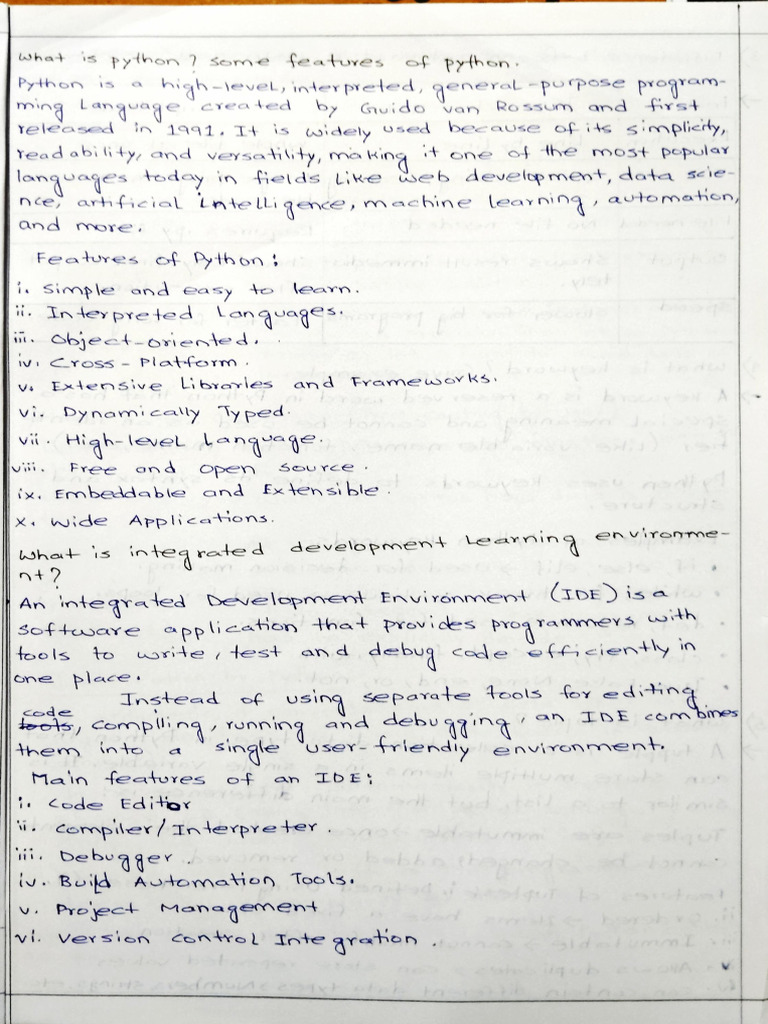 What is python? some features of python.
Python is a high-level, interpreted, general-purpose program-
ming Language created by Guido van Rossum and first
released in 1991. It is widely used because of its simplicity,
readability, and versatility, making it one of the most popular
languages today in fields like web development, data scie-
nce, artificial intelligence, machine learning, automation,
and more.
Features of Python:
i. Simple and easy to learn.
ii. Interpreted Languages.
iii. Object-oriented.
iv. Cross-Platform.
v. Extensive Libraries and Frameworks.
vi. Dynamically Typed.
vii. High-level Language.
viii. Free and open source.
ix. Embeddable and Extensible.
x. Wide Applications.
What is integrated development Learning environme-
nt?
An integrated Development Environment (IDE) is a
software application that provides programmers with
tools to write, test and debug code efficiently in
one place.
Instead of using separate tools for editing
code
tools, compiling, running and debugging, an IDE combines
them into a single user-friendly environment.
Main features of an IDE:
i. Code Editor
ii. Compiler/Interpreter.
iii. Debugger.
iv. Build Automation Tools.
v. Project Management
vi. Version control Integration.